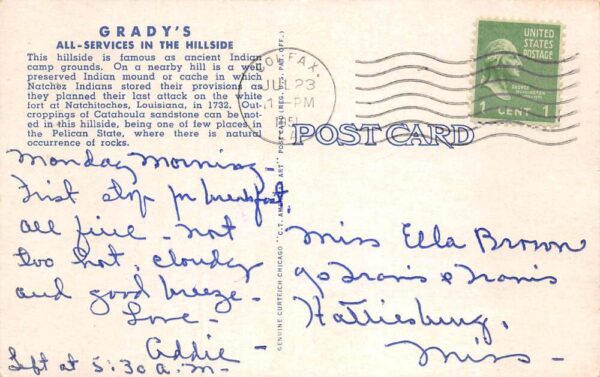 GRADY'S
ALL-SERVICES IN THE HILLSIDE
This hillside is famous as ancient Indian
camp grounds. On a nearby hill is a well
preserved Indian mound or cache in which
Natchez Indians stored their provisions as
they planned their last attack on the white
fort at Natchitoches, Louisiana, in 1732. Out-
croppings of Catahoula sandstone can be not-
ed in this hillside, being one of few places in
the Pelican State, where there is natural
occurrence of rocks.
Monday Morning.
First stop for breakfast.
All fine - not
too hot, cloudy
and good breeze -
Love -
Addie -
Left at 5:30 A.M -
GENUINE CURTEICH-CHICAGO "C.T. AMERICAN ART" POST CARD (REG. U.S. PAT. OFF.)
COLFAX,
JUL 23
1 PM
1951
LA
UNITED
STATES
POSTAGE
GEORGE
WASHINGTON
1 CENT 1
POST CARD
Miss Ella Brown
% Travis & Travis
Hattiesburg,
Miss -